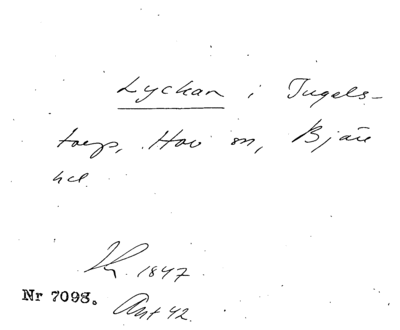 Lyckan i Ingels-
torp, Hov sn, Bjäre
hd.
1847
Nr 7098. Ant 42.